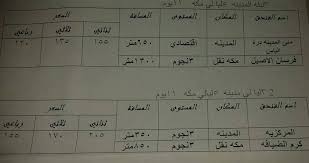 ليالي مكه ١١يوم
اسم الفندق المكان المستوى المسافة السعر
ثنائي ثلاثي رباعي
منى المدينه درة المدينه اقتصادي ٢٥٠متر ١٥٥ ١٣٥ ١٢٠
فرسان الاصيل مكه نقل ٣نجوم ١٣٠٠متر
ليالي مدينه ليالي مكه ١١يوم
اسم الفندق المكان المستوى المسافة السعر
ثنائي ثلاثي رباعي
المركزيه المدينه ٣نجوم ٣٥٠متر ٢٠٥ ١٧٠ ١٥٥
كرم الضيافه مكه نقل ٣نجوم ٨٥٠متر